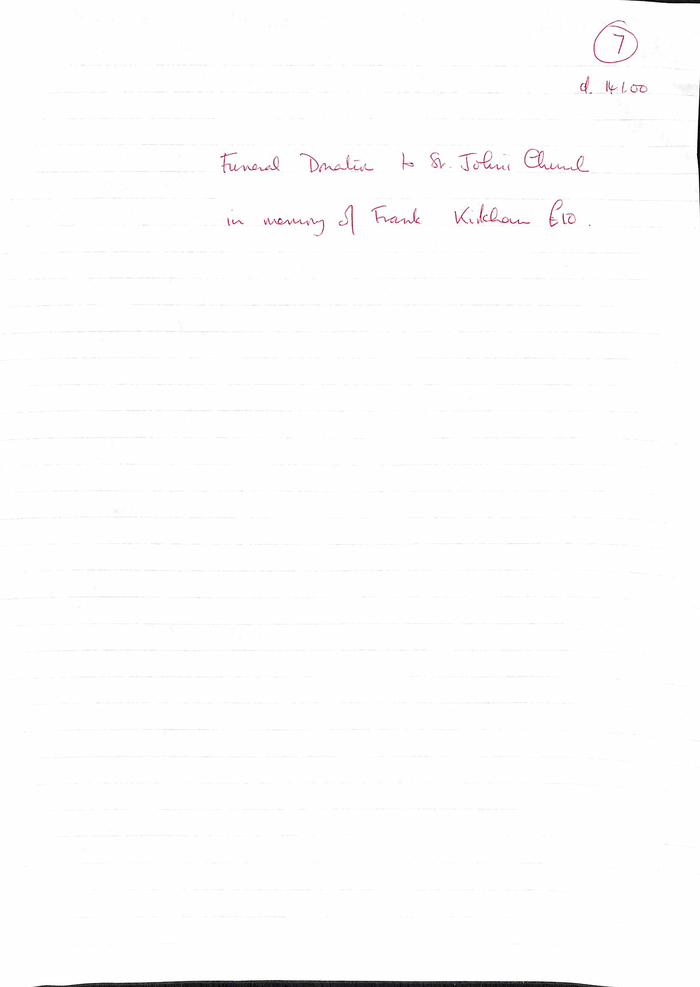 7
d. 14.1.00
Funeral Donation to St. John's Church
in memory of Frank Kirkham £10.